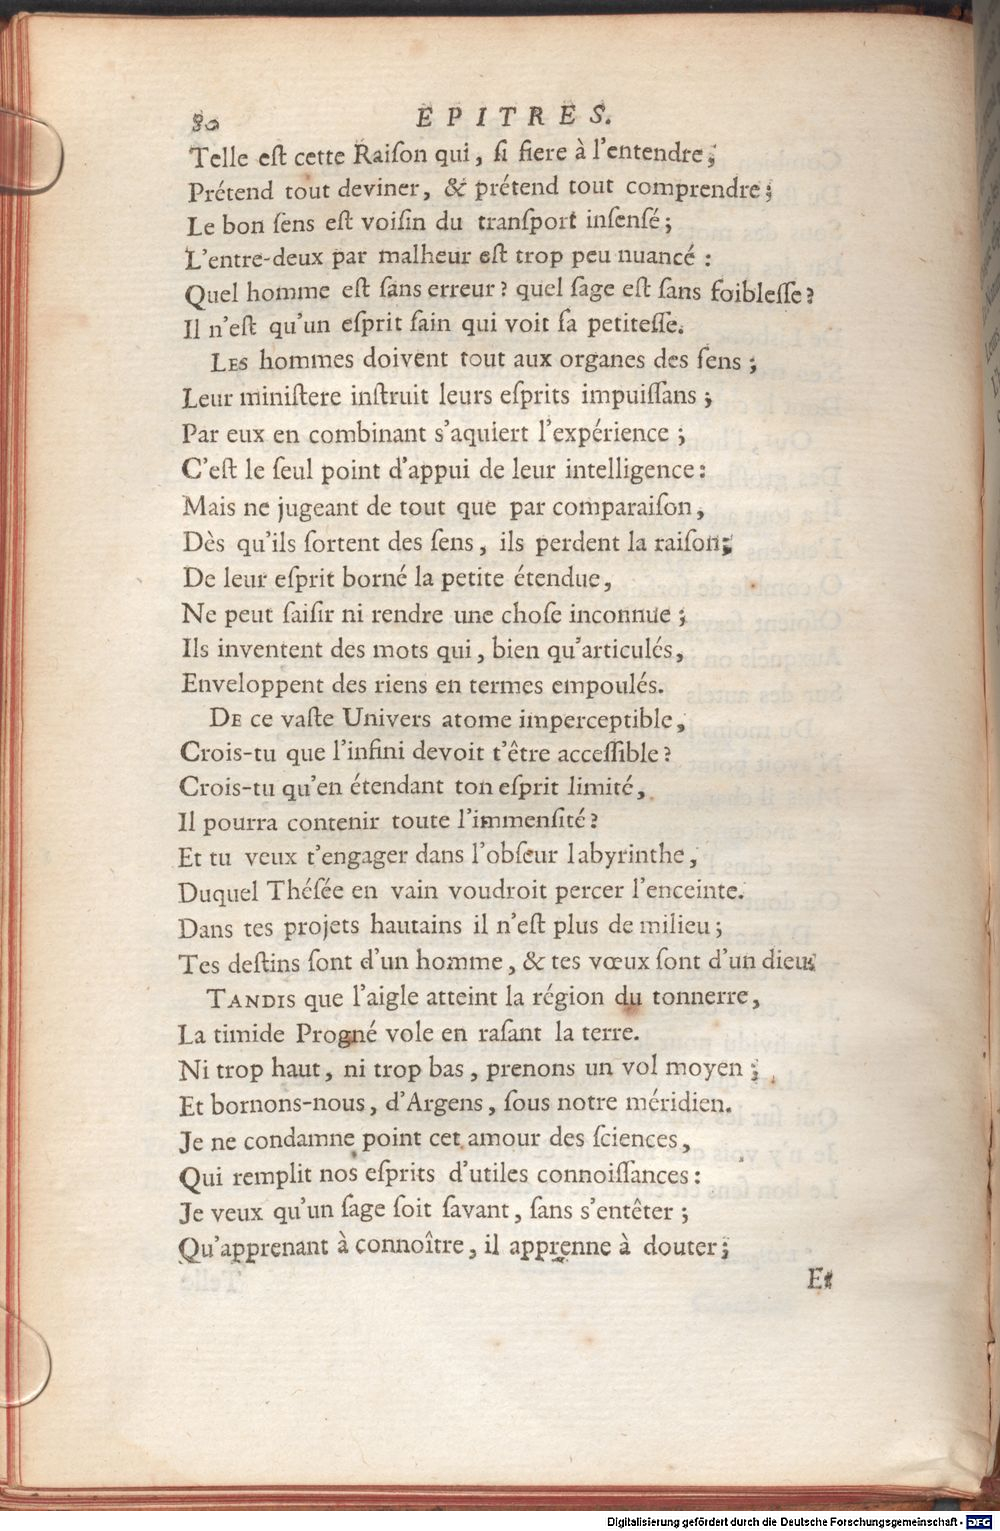 80 EPITRES.
Telle eſt cette Raiſon qui, ſi fiere à l'entendre;
Prétend tout deviner, & prétend tout comprendre;
Le bon ſens eſt voiſin du tranſport inſenſé;
L'entre-deux par malheur eſt trop peu nuancé :
Quel homme eſt ſans erreur? quel ſage eſt ſans foibleſſe?
Il n'eſt qu'un eſprit ſain qui voit ſa petiteſſe.
LES hommes doivent tout aux organes des ſens;
Leur miniſtere inſtruit leurs eſprits impuiſſans;
Par eux en combinant s'aquiert l'expérience;
C'eſt le ſeul point d'appui de leur intelligence:
Mais ne jugeant de tout que par comparaiſon,
Dès qu'ils ſortent des ſens, ils perdent la raiſon;
De leur eſprit borné la petite étendue,
Ne peut ſaiſir ni rendre une choſe inconnue;
Ils inventent des mots qui, bien qu'articulés,
Enveloppent des riens en termes empoulés.
DE ce vaſte Univers atome imperceptible,
Crois-tu que l'infini devoit t'être acceſſible?
Crois-tu qu'en étendant ton eſprit limité,
Il pourra contenir toute l'immenſité?
Et tu veux t'engager dans l'obſcur labyrinthe,
Duquel Théſée en vain voudroit percer l'enceinte.
Dans tes projets hautains il n'eſt plus de milieu;
Tes deſtins ſont d'un homme, & tes vœux ſont d'un dieu.
TANDIS que l'aigle atteint la région du tonnerre,
La timide Progné vole en raſant la terre.
Ni trop haut, ni trop bas, prenons un vol moyen;
Et bornons-nous, d'Argens, ſous notre méridien.
Je ne condamne point cet amour des ſciences,
Qui remplit nos eſprits d'utiles connoiſſances:
Je veux qu'un ſage ſoit ſavant, ſans s'entêter;
Qu'apprenant à connoître, il apprenne à douter;
Et
Digitalisierung gefördert durch die Deutsche Forschungsgemeinschaft - DFG